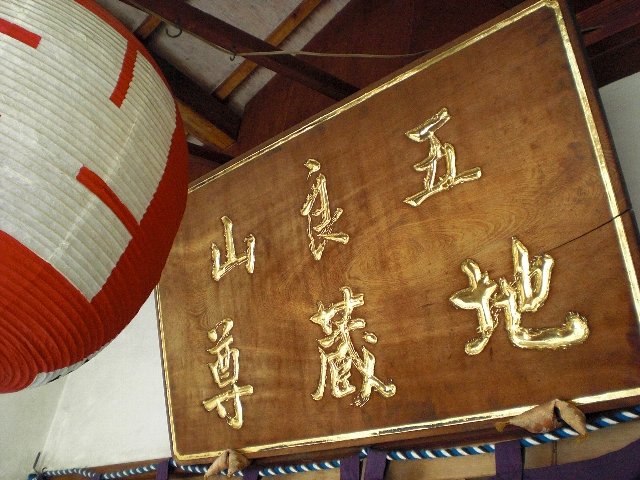 五良山
地蔵尊